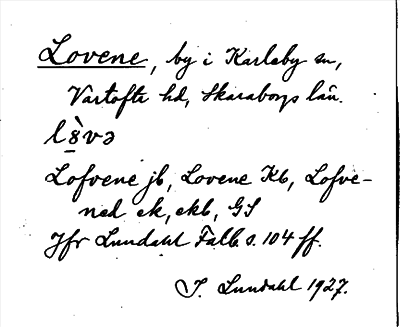 Lovene, by i Karleby sn,
Vartofta hd, Skaraborgs län.
l8̀və
Lofvene jb, Lovene Kb, Lofve-
ned ek, ekb, GS
Jfr Lundahl Falb s. 104 ff.
I. Lundahl 1927.